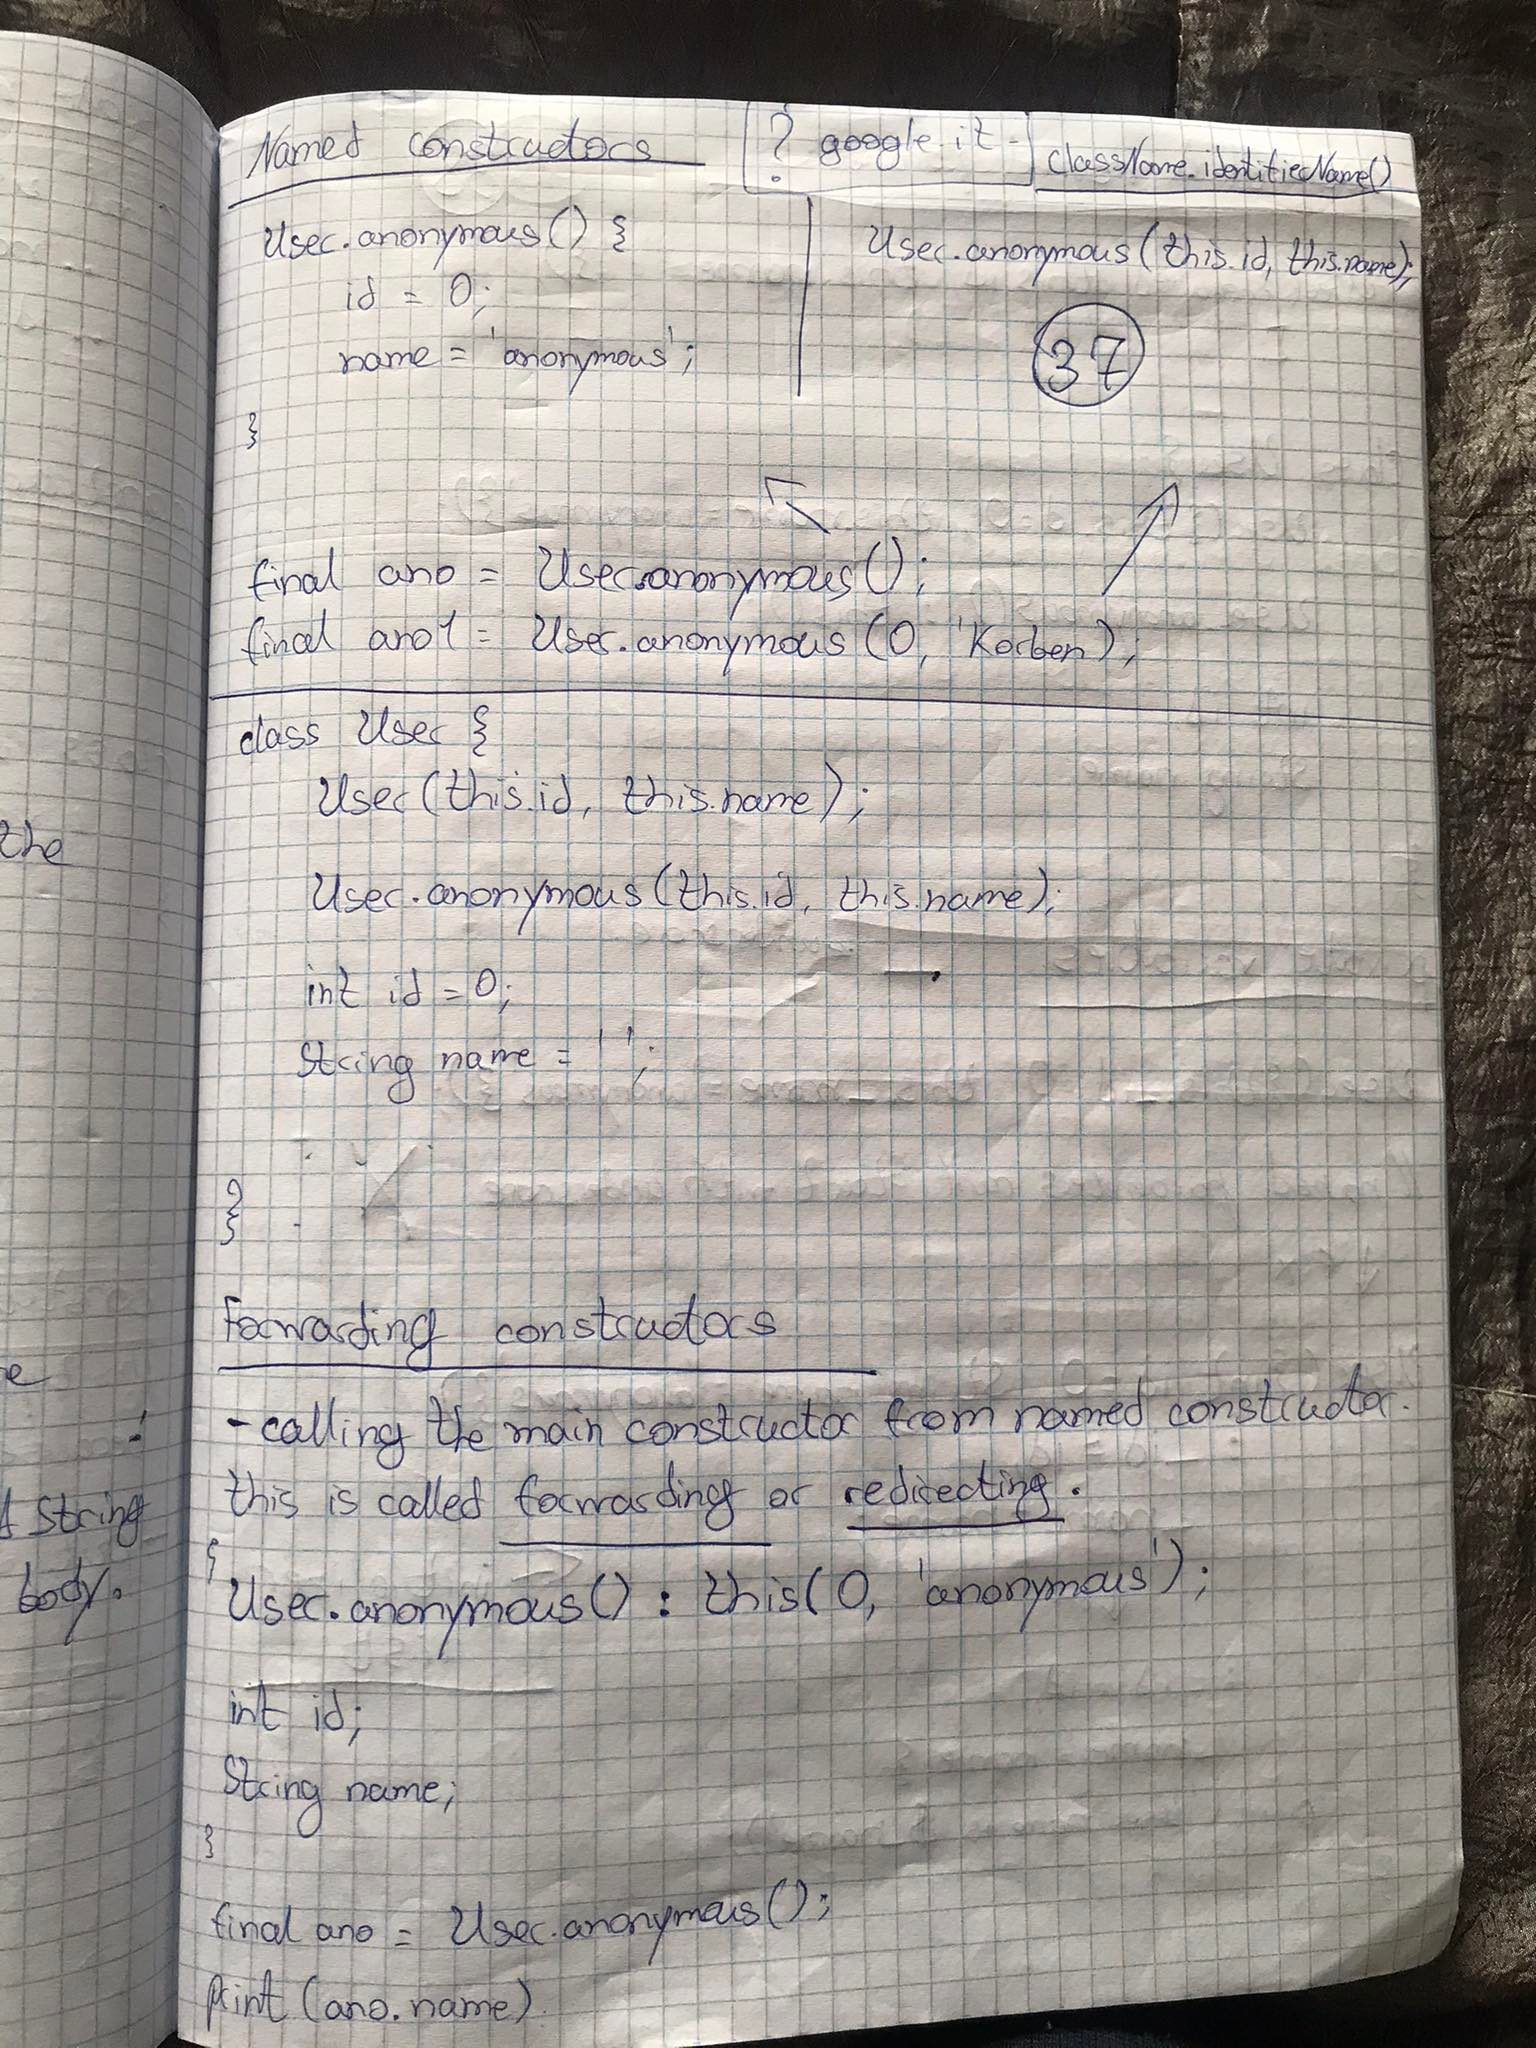 Named constructors
? google it -
className.identifierName()
User.anonymous() {
id = 0;
name = 'anonymous';
}
User.anonymous(this.id, this.name);
37
final ano = User.anonymous();
final ano1 = User.anonymous (0, 'Korben);
class User {
User(this.id, this.name);
User.anonymous(this.id, this.name);
int id = 0;
String name = '';
}
Forwarding constructors
- calling the main constructor from named constructor.
this is called forwarding or redirecting.
{
User.anonymous() : this(0, 'anonymous');
int id;
String name;
}
final ano = User.anonymous();
print (ano.name)
the
e
String
body.